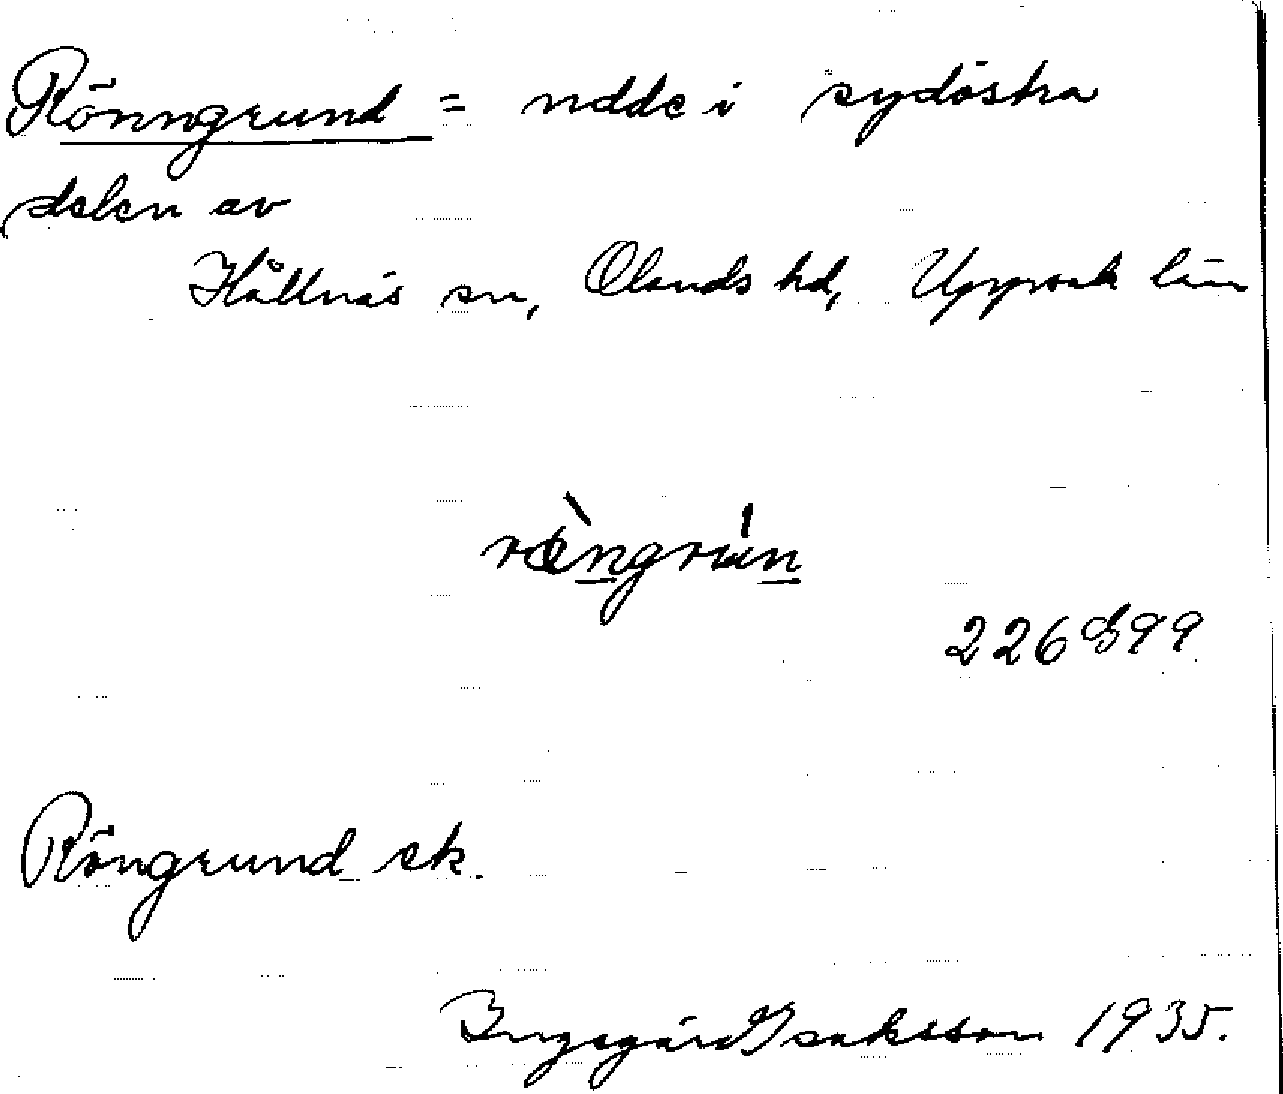 Rönngrund = udde i sydöstra
delen av
Hållnäs sn, Olands hd, Uppsala län
rö̀ngrún
226 G99
Röngrund ek.
Ingegärd Isaksson 1935.